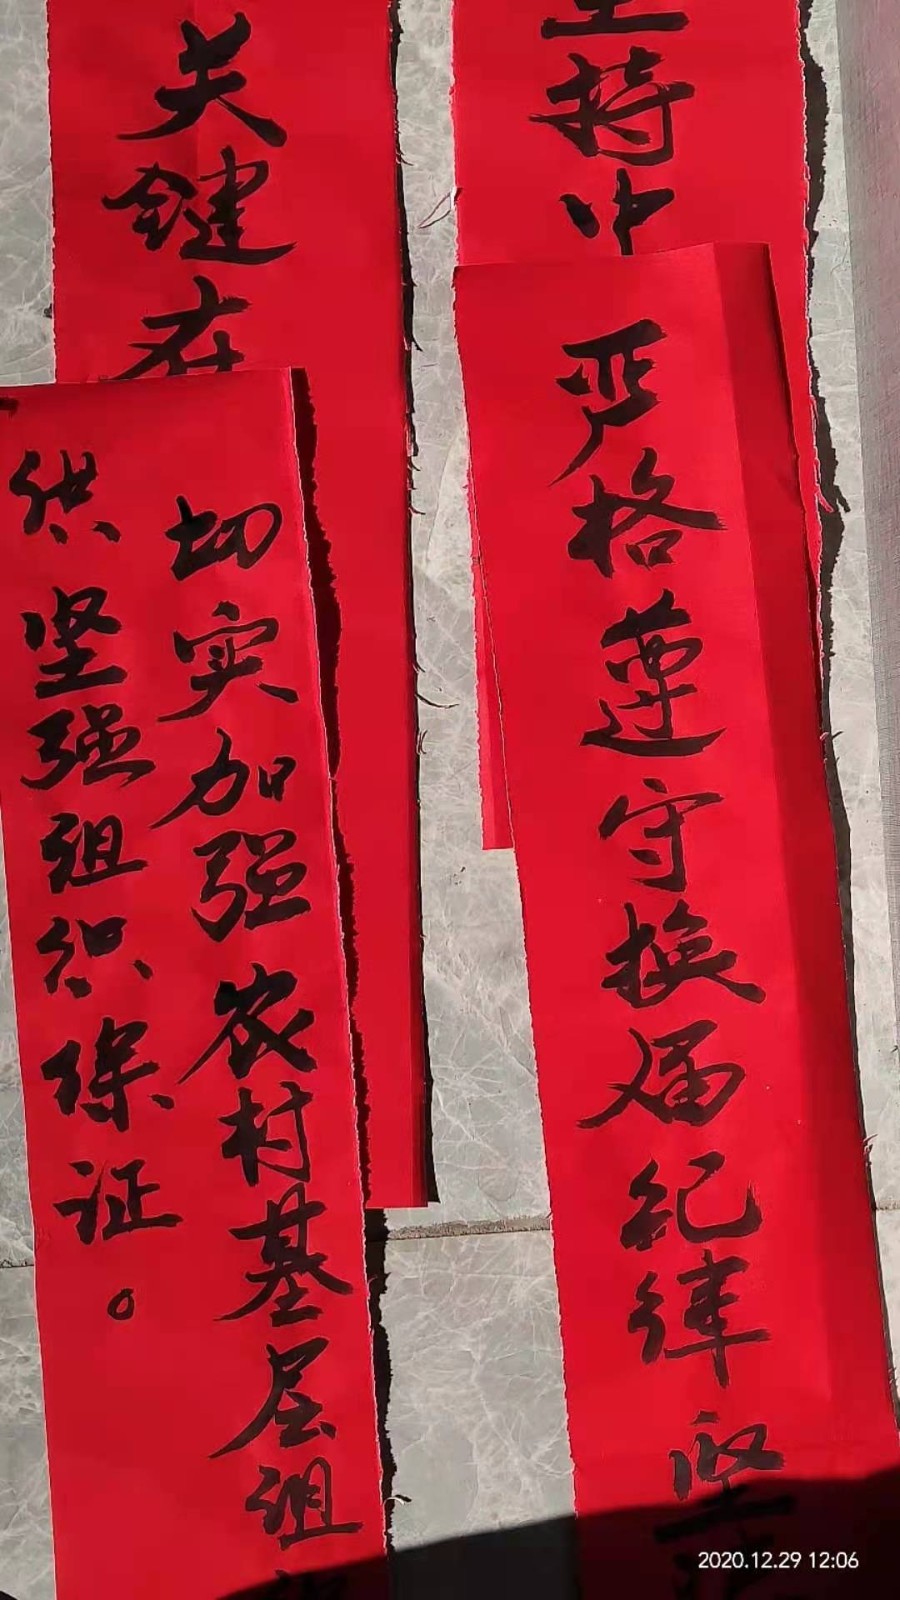 坚持中
严格遵守换届纪律坚
关键在
切实加强农村基层组
供坚强组织保证。
2020.12.29 12:06